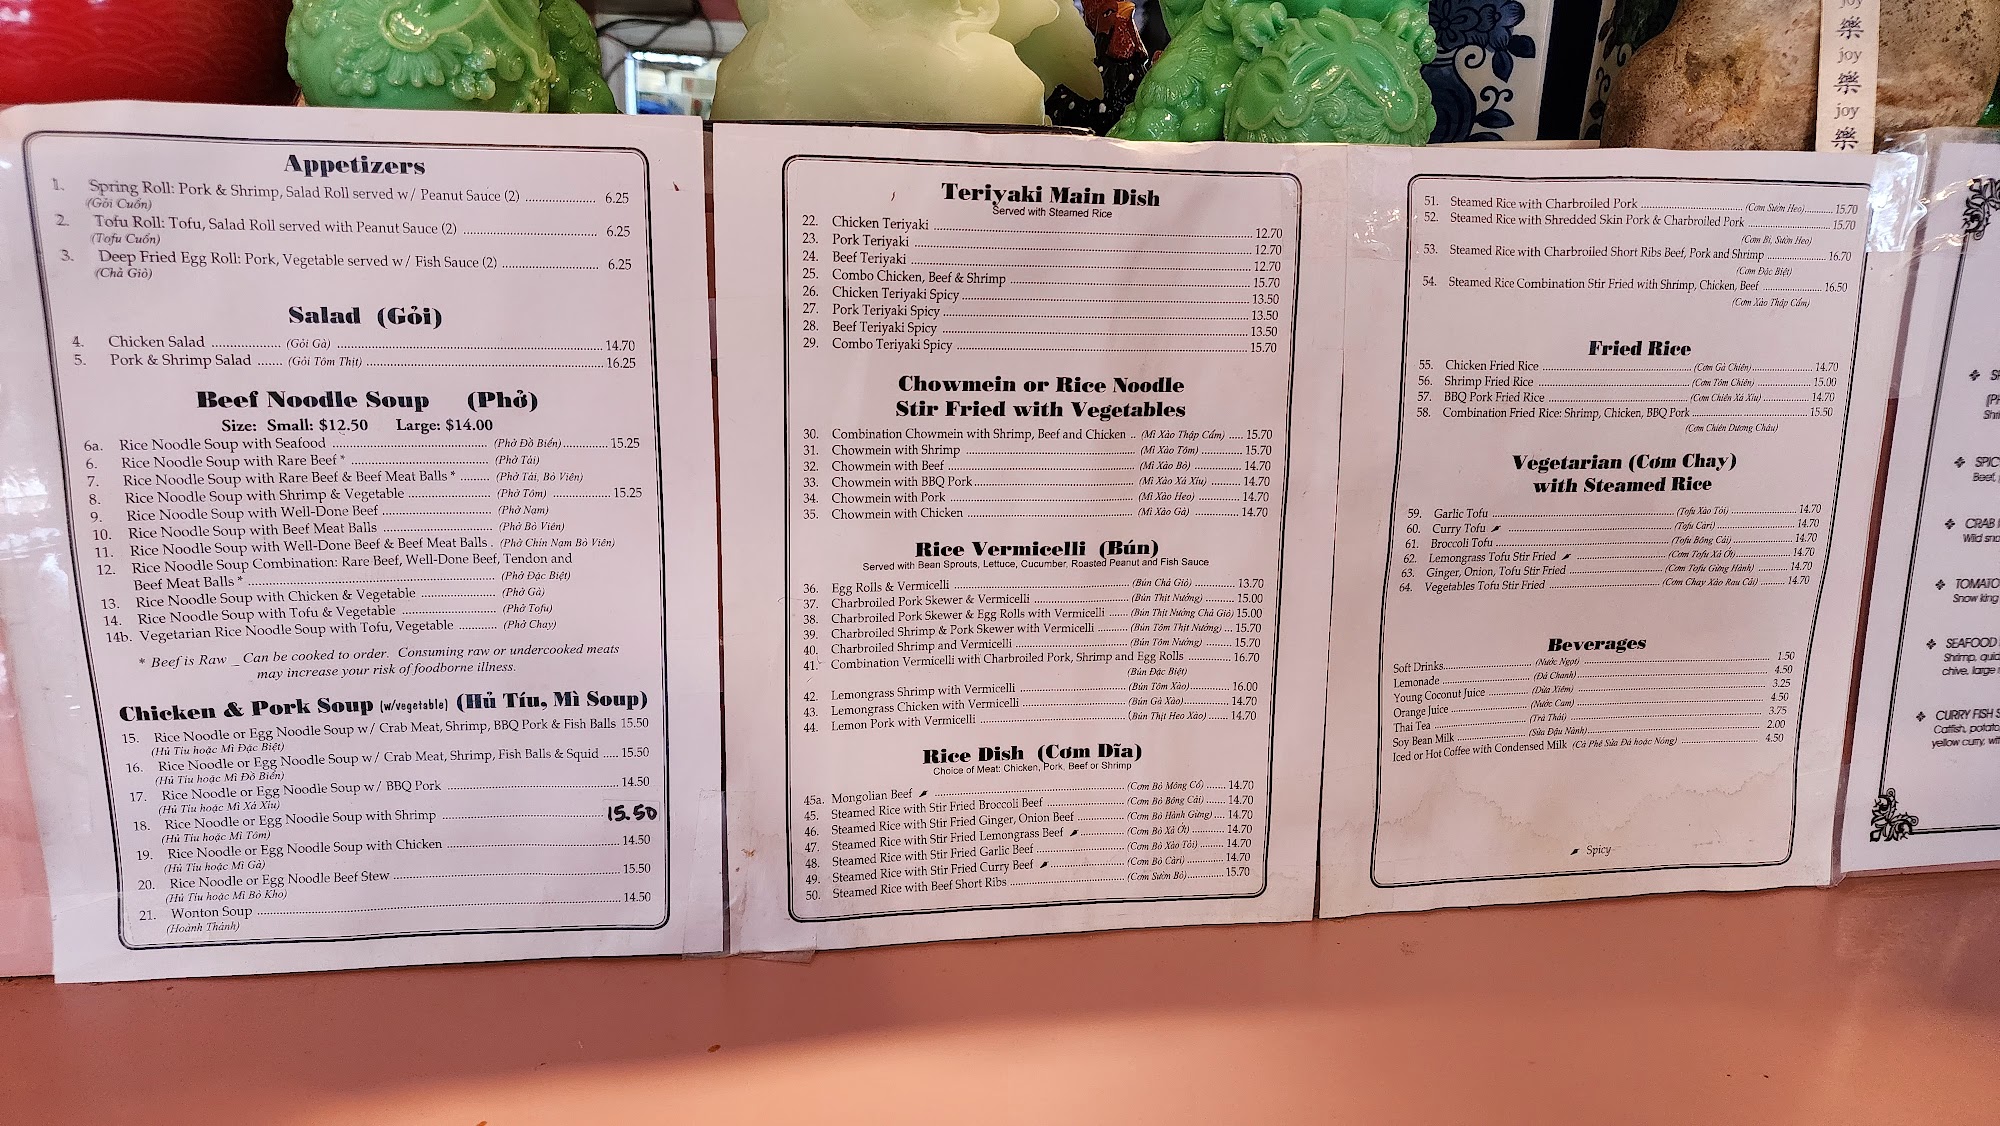 joy
樂
joy
樂
joy
樂
Appetizers
1. Spring Roll: Pork & Shrimp, Salad Roll served w/ Peanut Sauce (2) 6.25
(Gỏi Cuốn)
2. Tofu Roll: Tofu, Salad Roll served with Peanut Sauce (2) 6.25
(Tofu Cuốn)
3. Deep Fried Egg Roll: Pork, Vegetable served w/ Fish Sauce (2) 6.25
(Chả Giò)
Salad (Gỏi)
4. Chicken Salad (Gỏi Gà) 14.70
5. Pork & Shrimp Salad (Gỏi Tôm Thịt) 16.25
Beef Noodle Soup (Phở)
Size: Small: $12.50 Large: $14.00
6a. Rice Noodle Soup with Seafood (Phở Đồ Biển) 15.25
6. Rice Noodle Soup with Rare Beef * (Phở Tái)
7. Rice Noodle Soup with Rare Beef & Beef Meat Balls * (Phở Tái, Bò Viên)
8. Rice Noodle Soup with Shrimp & Vegetable (Phở Tôm) 15.25
9. Rice Noodle Soup with Well-Done Beef (Phở Nạm)
10. Rice Noodle Soup with Beef Meat Balls (Phở Bò Viên)
11. Rice Noodle Soup with Well-Done Beef & Beef Meat Balls . (Phở Chín Nạm Bò Viên)
12. Rice Noodle Soup Combination: Rare Beef, Well-Done Beef, Tendon and
Beef Meat Balls * (Phở Đặc Biệt)
13. Rice Noodle Soup with Chicken & Vegetable (Phở Gà)
14. Rice Noodle Soup with Tofu & Vegetable (Phở Tofu)
14b. Vegetarian Rice Noodle Soup with Tofu, Vegetable (Phở Chay)
* Beef is Raw _ Can be cooked to order. Consuming raw or undercooked meats
may increase your risk of foodborne illness.
Chicken & Pork Soup (w/vegetable) (Hủ Tíu, Mì Soup)
15. Rice Noodle or Egg Noodle Soup w/ Crab Meat, Shrimp, BBQ Pork & Fish Balls 15.50
(Hủ Tíu hoặc Mì Đặc Biệt)
16. Rice Noodle or Egg Noodle Soup w/ Crab Meat, Shrimp, Fish Balls & Squid 15.50
(Hủ Tíu hoặc Mì Đồ Biển)
17. Rice Noodle or Egg Noodle Soup w/ BBQ Pork 14.50
(Hủ Tíu hoặc Mì Xá Xíu)
18. Rice Noodle or Egg Noodle Soup with Shrimp 15.50
(Hủ Tíu hoặc Mì Tôm)
19. Rice Noodle or Egg Noodle Soup with Chicken 14.50
(Hủ Tíu hoặc Mì Gà)
20. Rice Noodle or Egg Noodle Beef Stew 15.50
(Hủ Tíu hoặc Mì Bò Kho)
21. Wonton Soup 14.50
(Hoành Thánh)
Teriyaki Main Dish
Served with Steamed Rice
22. Chicken Teriyaki 12.70
23. Pork Teriyaki 12.70
24. Beef Teriyaki 12.70
25. Combo Chicken, Beef & Shrimp 15.70
26. Chicken Teriyaki Spicy 13.50
27. Pork Teriyaki Spicy 13.50
28. Beef Teriyaki Spicy 13.50
29. Combo Teriyaki Spicy 15.70
Chowmein or Rice Noodle
Stir Fried with Vegetables
30. Combination Chowmein with Shrimp, Beef and Chicken .. (Mì Xào Thập Cẩm) 15.70
31. Chowmein with Shrimp (Mì Xào Tôm) 15.70
32. Chowmein with Beef (Mì Xào Bò) 14.70
33. Chowmein with BBQ Pork (Mì Xào Xá Xíu) 14.70
34. Chowmein with Pork (Mì Xào Heo) 14.70
35. Chowmein with Chicken (Mì Xào Gà) 14.70
Rice Vermicelli (Bún)
Served with Bean Sprouts, Lettuce, Cucumber, Roasted Peanut and Fish Sauce
36. Egg Rolls & Vermicelli (Bún Chả Giò) 13.70
37. Charbroiled Pork Skewer & Vermicelli (Bún Thịt Nướng) 15.00
38. Charbroiled Pork Skewer & Egg Rolls with Vermicelli (Bún Thịt Nướng Chả Giò) 15.00
39. Charbroiled Shrimp & Pork Skewer with Vermicelli (Bún Tôm Thịt Nướng) 15.70
40. Charbroiled Shrimp and Vermicelli (Bún Tôm Nướng) 15.70
41. Combination Vermicelli with Charbroiled Pork, Shrimp and Egg Rolls 16.70
(Bún Đặc Biệt)
42. Lemongrass Shrimp with Vermicelli (Bún Tôm Xào) 16.00
43. Lemongrass Chicken with Vermicelli (Bún Gà Xào) 14.70
44. Lemon Pork with Vermicelli (Bún Thịt Heo Xào) 14.70
Rice Dish (Cơm Dĩa)
Choice of Meat: Chicken, Pork, Beef or Shrimp
45a. Mongolian Beef (Cơm Bò Mông Cổ) 14.70
45. Steamed Rice with Stir Fried Broccoli Beef (Cơm Bò Bông Cải) 14.70
46. Steamed Rice with Stir Fried Ginger, Onion Beef (Cơm Bò Hành Gừng) 14.70
47. Steamed Rice with Stir Fried Lemongrass Beef (Cơm Bò Xả Ớt) 14.70
48. Steamed Rice with Stir Fried Garlic Beef (Cơm Bò Xào Tỏi) 14.70
49. Steamed Rice with Stir Fried Curry Beef (Cơm Bò Càri) 14.70
50. Steamed Rice with Beef Short Ribs (Cơm Sườn Bò) 15.70
51. Steamed Rice with Charbroiled Pork (Cơm Sườn Heo) 15.70
52. Steamed Rice with Shredded Skin Pork & Charbroiled Pork 15.70
(Cơm Bì, Sườn Heo)
53. Steamed Rice with Charbroiled Short Ribs Beef, Pork and Shrimp 16.70
(Cơm Đặc Biệt)
54. Steamed Rice Combination Stir Fried with Shrimp, Chicken, Beef 16.50
(Cơm Xào Thập Cẩm)
Fried Rice
55. Chicken Fried Rice (Cơm Gà Chiên) 14.70
56. Shrimp Fried Rice (Cơm Tôm Chiên) 15.00
57. BBQ Pork Fried Rice (Cơm Chiên Xá Xíu) 14.70
58. Combination Fried Rice: Shrimp, Chicken, BBQ Pork 15.50
(Cơm Chiên Dương Châu)
Vegetarian (Cơm Chay)
with Steamed Rice
59. Garlic Tofu (Tofu Xào Tỏi) 14.70
60. Curry Tofu (Tofu Càri) 14.70
61. Broccoli Tofu (Tofu Bông Cải) 14.70
62. Lemongrass Tofu Stir Fried (Cơm Tofu Xả Ớt) 14.70
63. Ginger, Onion, Tofu Stir Fried (Cơm Tofu Gừng Hành) 14.70
64. Vegetables Tofu Stir Fried (Cơm Chay Xào Rau Cải) 14.70
Beverages
Soft Drinks (Nước Ngọt) 1.50
Lemonade (Đá Chanh) 4.50
Young Coconut Juice (Dừa Xiêm) 3.25
Orange Juice (Nước Cam) 4.50
Thai Tea (Trà Thái) 3.75
Soy Bean Milk (Sữa Đậu Nành) 2.00
Iced or Hot Coffee with Condensed Milk (Cà Phê Sữa Đá hoặc Nóng) 4.50
Spicy
SPIC
Beef,
CRAB
Wild
TOMATO
Snow king
SEAFOOD
Shrimp,
chive, large
CURRY FISH S
Catfish, potato
yellow curry,